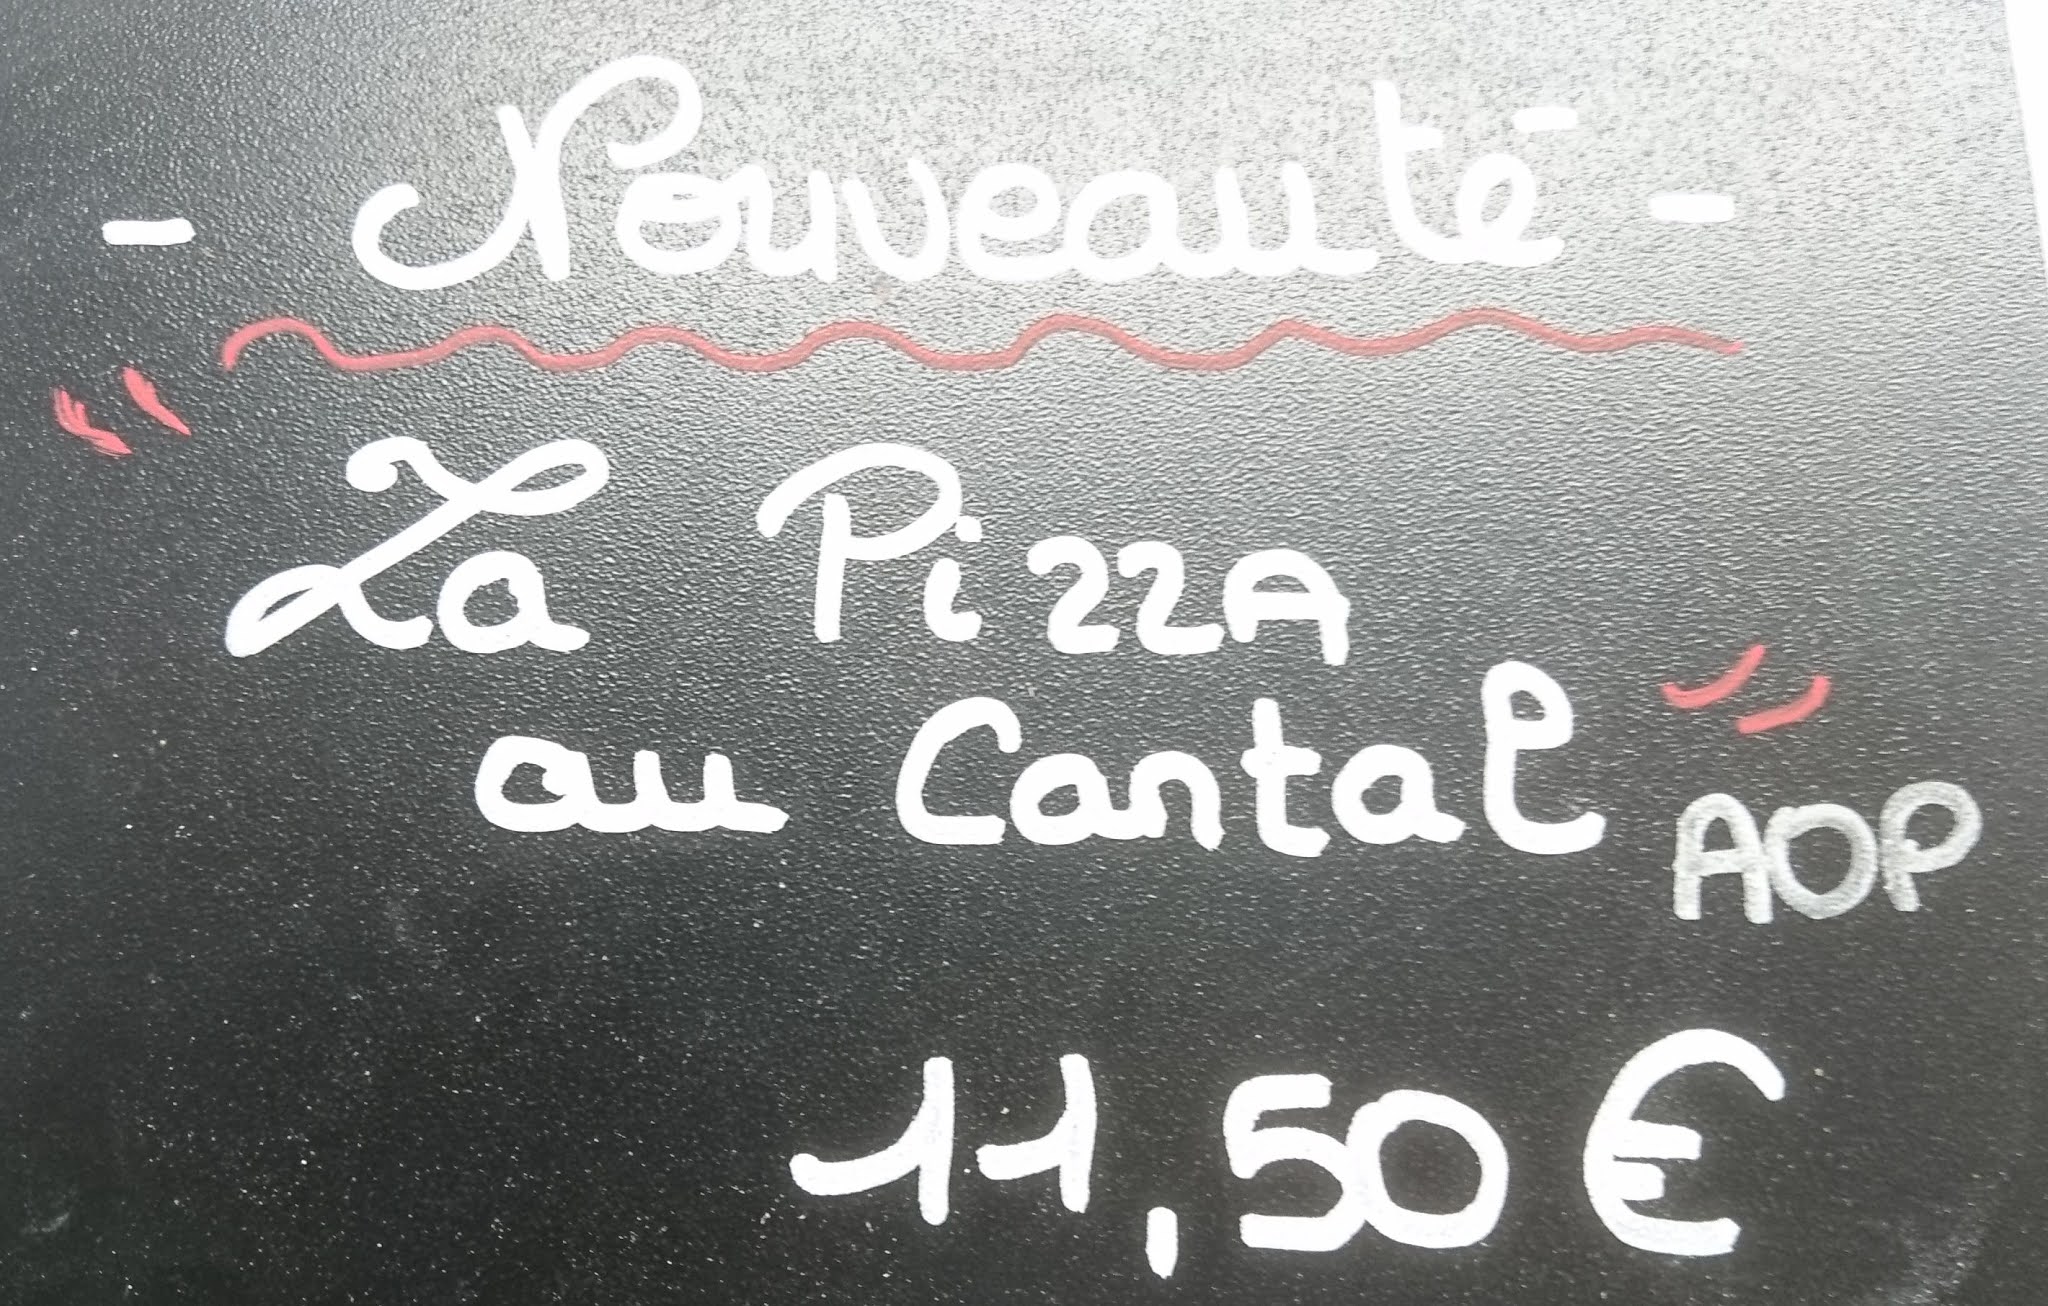 - Nouveauté -
" La Pizza
au Cantal " AOP
11,50 €